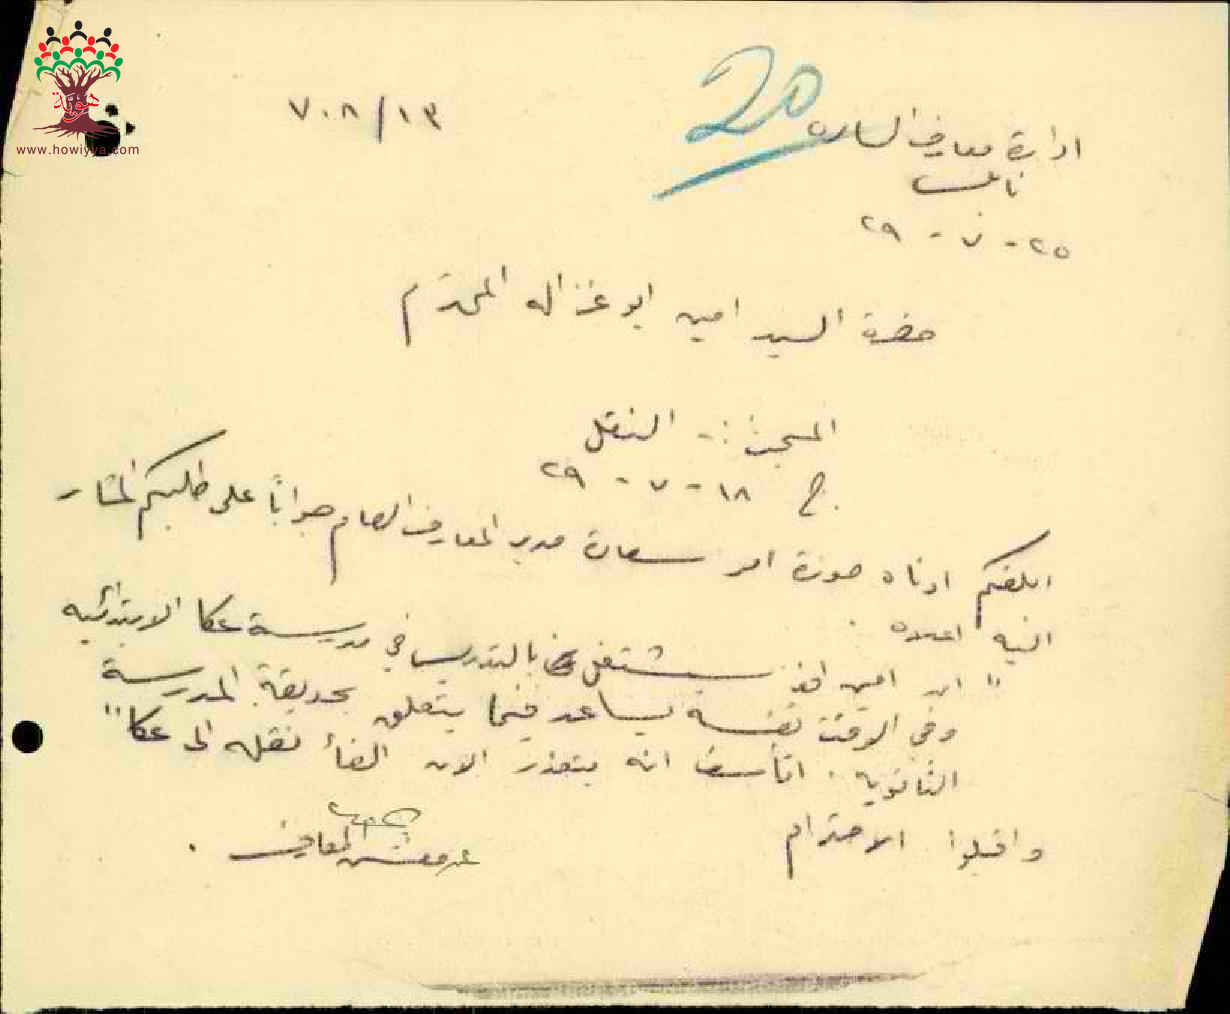 هوية
www.howiyya.com
20
٧٠٨/١٣
ادارة معارف السامرة
نابلس
٢٥ - ٧ - ٢٩
حضرة السيد امين ابو غزاله المحترم
المبحث :- النقل
ج ١٨ - ٧ - ٢٩
ابلغكم ادناه صورة امر سعادة مدير المعارف العام جواباً على طلبكم المشار
اليه اعلاه .
" ان امين افندي سيشتغل بالتدريس في مدرسة عكا الابتدائيه
وفي الوقت نفسه يساعد فيما يتعلق بحديقة المدرسة
الثانويه . اتأسف انه يتعذر الان الغاء نقله الى عكا "
واقبلوا الاحترام
عن مفتش المعارف .